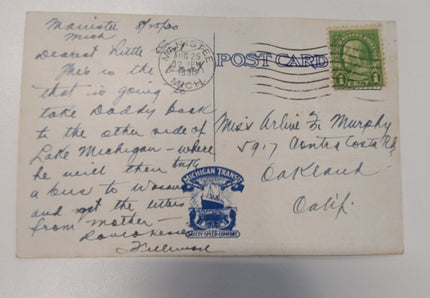 Manistee 8/25/30
Mich
Dearest Little
This is the
that is going to
take Daddy back
to the other side of
Lake Michigan - where
he will then take
a bus to
and get the letters
from mother -
Love & Kisses
MANISTEE
AUG 25
1930
MICH.
POST CARD
1
Miss Arline F. Murphy
5917 Contra Costa Rd.
Oakland
Calif.
MICHIGAN TRANSIT
SAFETY SPEED COMFORT